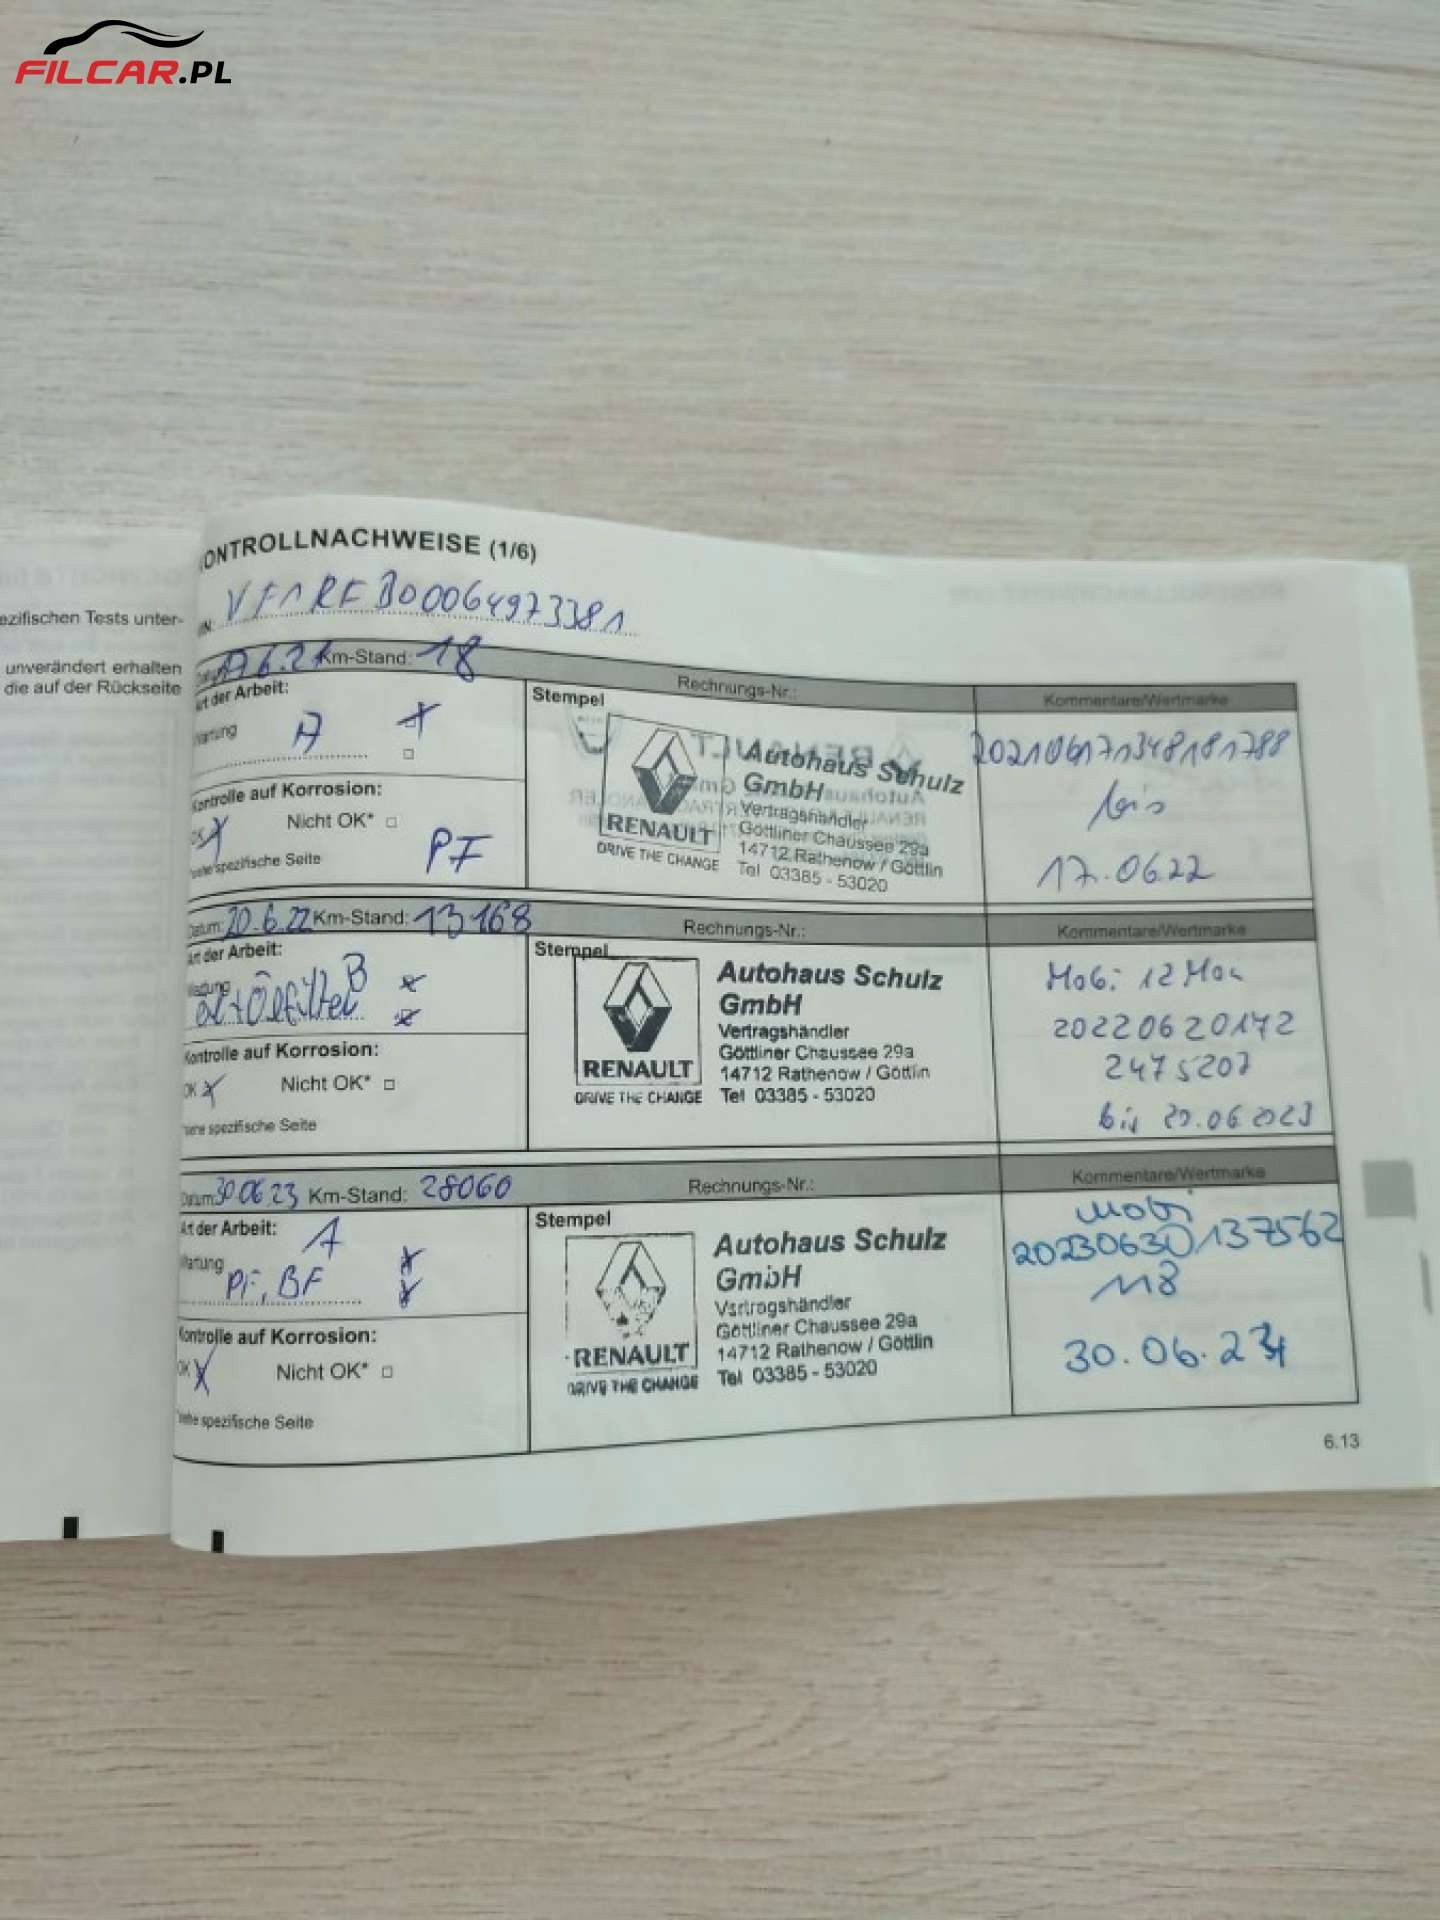 FILCAR.PL
ezifischen Tests unter-
unverändert erhalten
die auf der Rückseite
ONTROLLNACHWEISE (1/6)
VIN: VF1RFB00064973381
17.6.21 Km-Stand: 18
Rechnungs-Nr.:
Kommentare/Wertmarke
Art der Arbeit:
Wartung A
Kontrolle auf Korrosion:
OK Nicht OK* □
*siehe spezifische Seite
PF
Stempel
RENAULT
DRIVE THE CHANGE
Autohaus Schulz
GmbH
Vertragshändler
Göttliner Chaussee 29a
14712 Rathenow / Göttlin
Tel 03385 - 53020
202106171348181788
bis
17.06.22
Datum: 20.6.22 Km-Stand: 13168
Rechnungs-Nr.:
Kommentare/Wertmarke
Art der Arbeit:
Wartung B
Öl + Ölfilter
Kontrolle auf Korrosion:
OK Nicht OK* □
*siehe spezifische Seite
Stempel
RENAULT
DRIVE THE CHANGE
Autohaus Schulz
GmbH
Vertragshändler
Göttliner Chaussee 29a
14712 Rathenow / Göttlin
Tel 03385 - 53020
Mobi 12 Mon
20220620172
2475207
bis 20.06.2023
Datum: 30.06.23 Km-Stand: 28060
Rechnungs-Nr.:
Kommentare/Wertmarke
Art der Arbeit:
Wartung A
PF, BF
Kontrolle auf Korrosion:
OK Nicht OK* □
*siehe spezifische Seite
Stempel
RENAULT
DRIVE THE CHANGE
Autohaus Schulz
GmbH
Vertragshändler
Göttliner Chaussee 29a
14712 Rathenow / Göttlin
Tel 03385 - 53020
Mobi
20230630137562
118
30.06.24
6.13